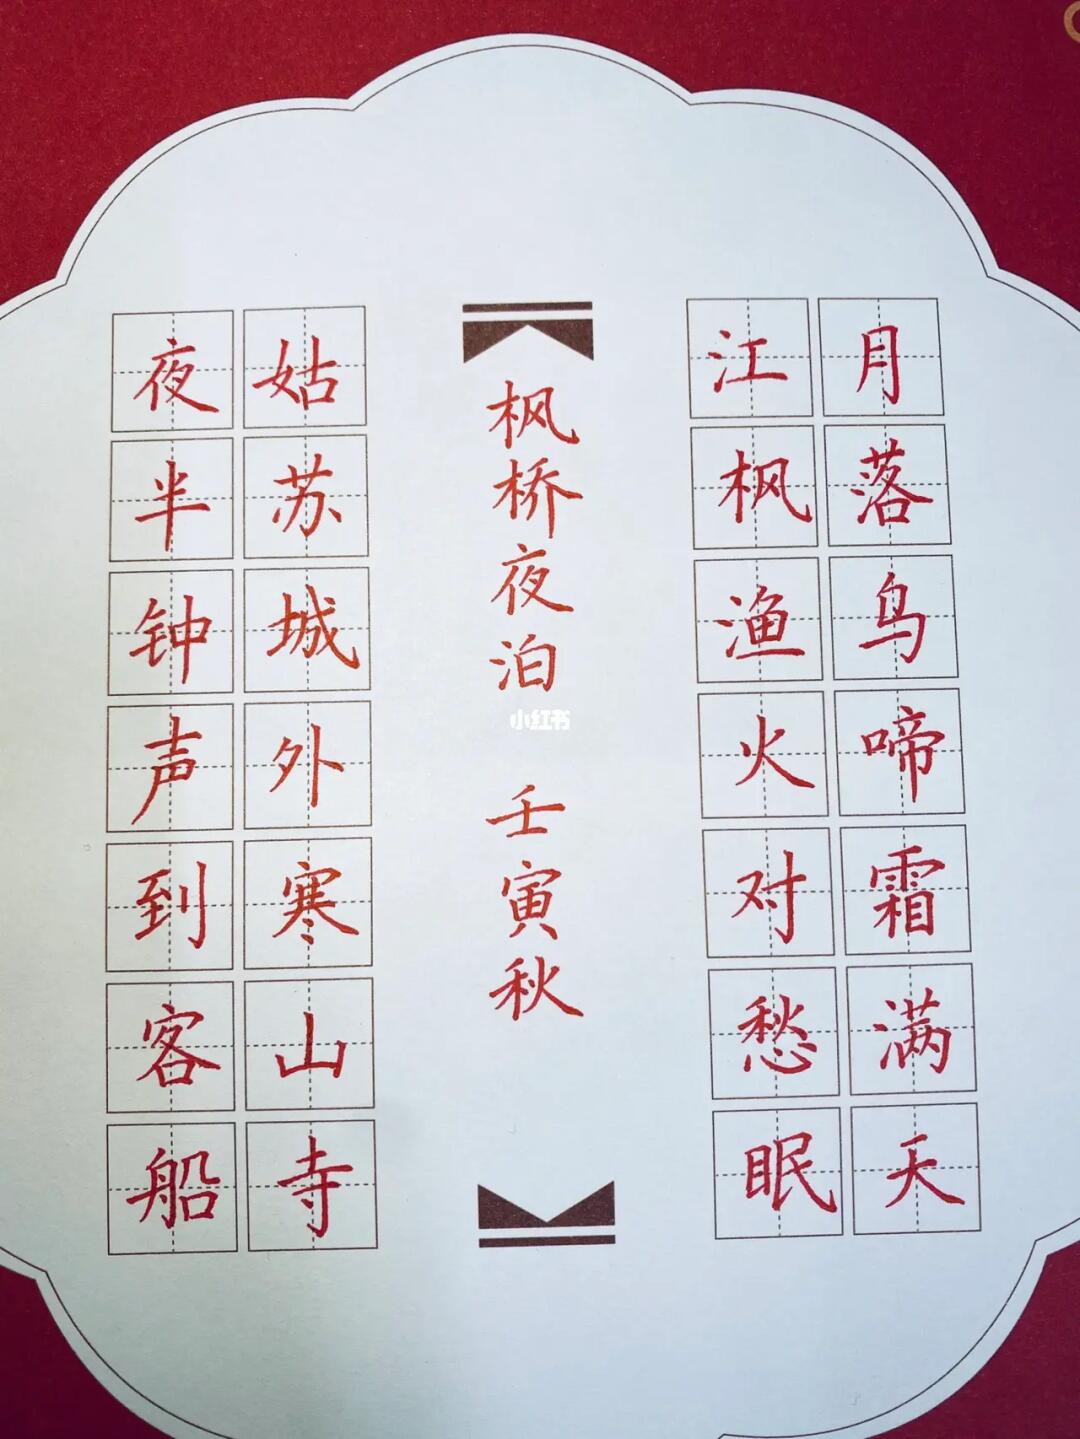 月落乌啼霜满天
江枫渔火对愁眠
枫桥夜泊 壬寅秋
小红书
姑苏城外寒山寺
夜半钟声到客船